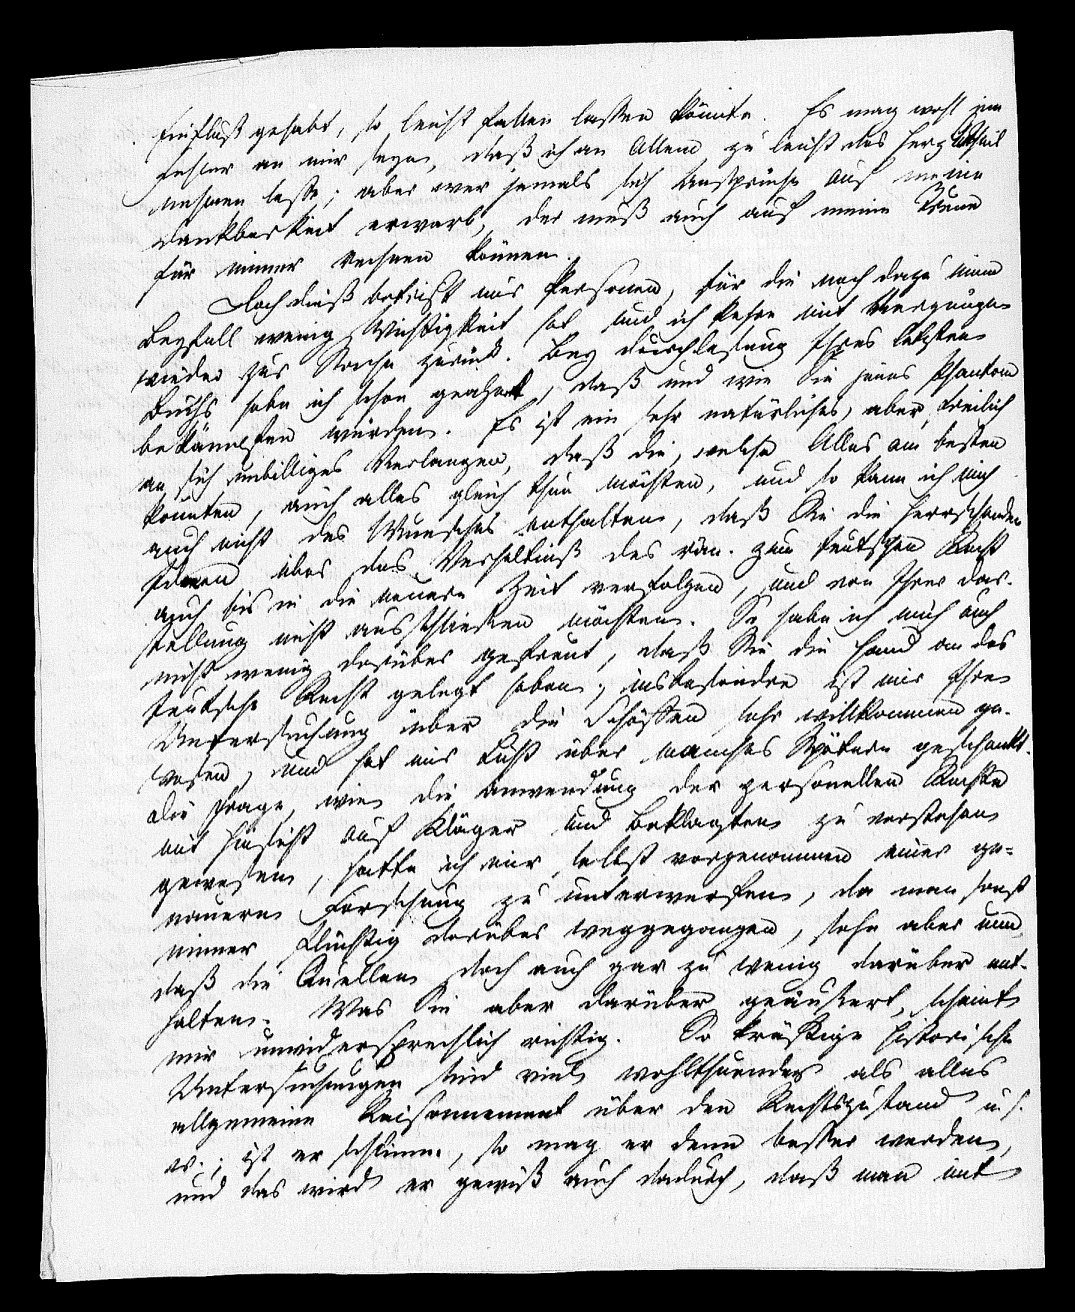 Einfluß gehabt, so leicht fallen lassen könnte. Es mag wohl ein
Fehler an mir seyn, daß ich an Allem zu leicht das Herz Theil
nehmen lasse; aber wer jemals sich Ansprüche auf meine
Dankbarkeit erwarb, der muß auch auf meine Treue
für immer rechnen können.
Doch dieß betrifft nur Personen, für die noch dazu mein
Beyfall wenig Wichtigkeit hat und ich kehre mit Vergnügen
wieder zur Sache zurück. Bey Durchlesung Ihres letzten
Buchs habe ich schon geahnt, daß und wie Sie jenes Phantom
bekämpfen würden. Es ist ein sehr natürliches, aber freilich
an sich unbilliges Verlangen, daß die, welche Alles am besten
könnten, auch alles gleich thun möchten, und so kann ich mich
auch nicht des Wunsches enthalten, daß Sie die herrschenden
Ideen über das Verhältniß des röm. zum teutschen Recht
auch bis in die neuere Zeit verfolgen, und von Ihrer Dar-
stellung nicht ausschließen möchten. So habe ich mich auch
nicht wenig darüber gefreut, daß Sie die Hand an das
teutsche Recht gelegt haben; insbesondre ist mir Ihre
Untersuchung über die Schöffen sehr willkommen ge-
wesen, und hat mir Licht über manches Spätere geschenkt.
Die Frage, wie die Anwendung der personellen Rechte
mit Hinsicht auf Kläger und Beklagten zu verstehen
gewesen, hatte ich mir selbst vorgenommen einer ge-
nauern Forschung zu unterwerfen, da man sonst
immer flüchtig darüber weggegangen, sehe aber nun
daß die Quellen doch auch gar zu wenig darüber ent-
halten. Was Sie aber darüber geäußert, scheint
mir unwidersprechlich richtig. So kräftige historische
Untersuchungen sind viel wohlthuender als alles
allgemeine Raisonnement über den Rechtszustand u. s.
w.; ist er schlimm, so mag er denn besser werden,
und das wird er gewiß auch dadurch, daß man mit